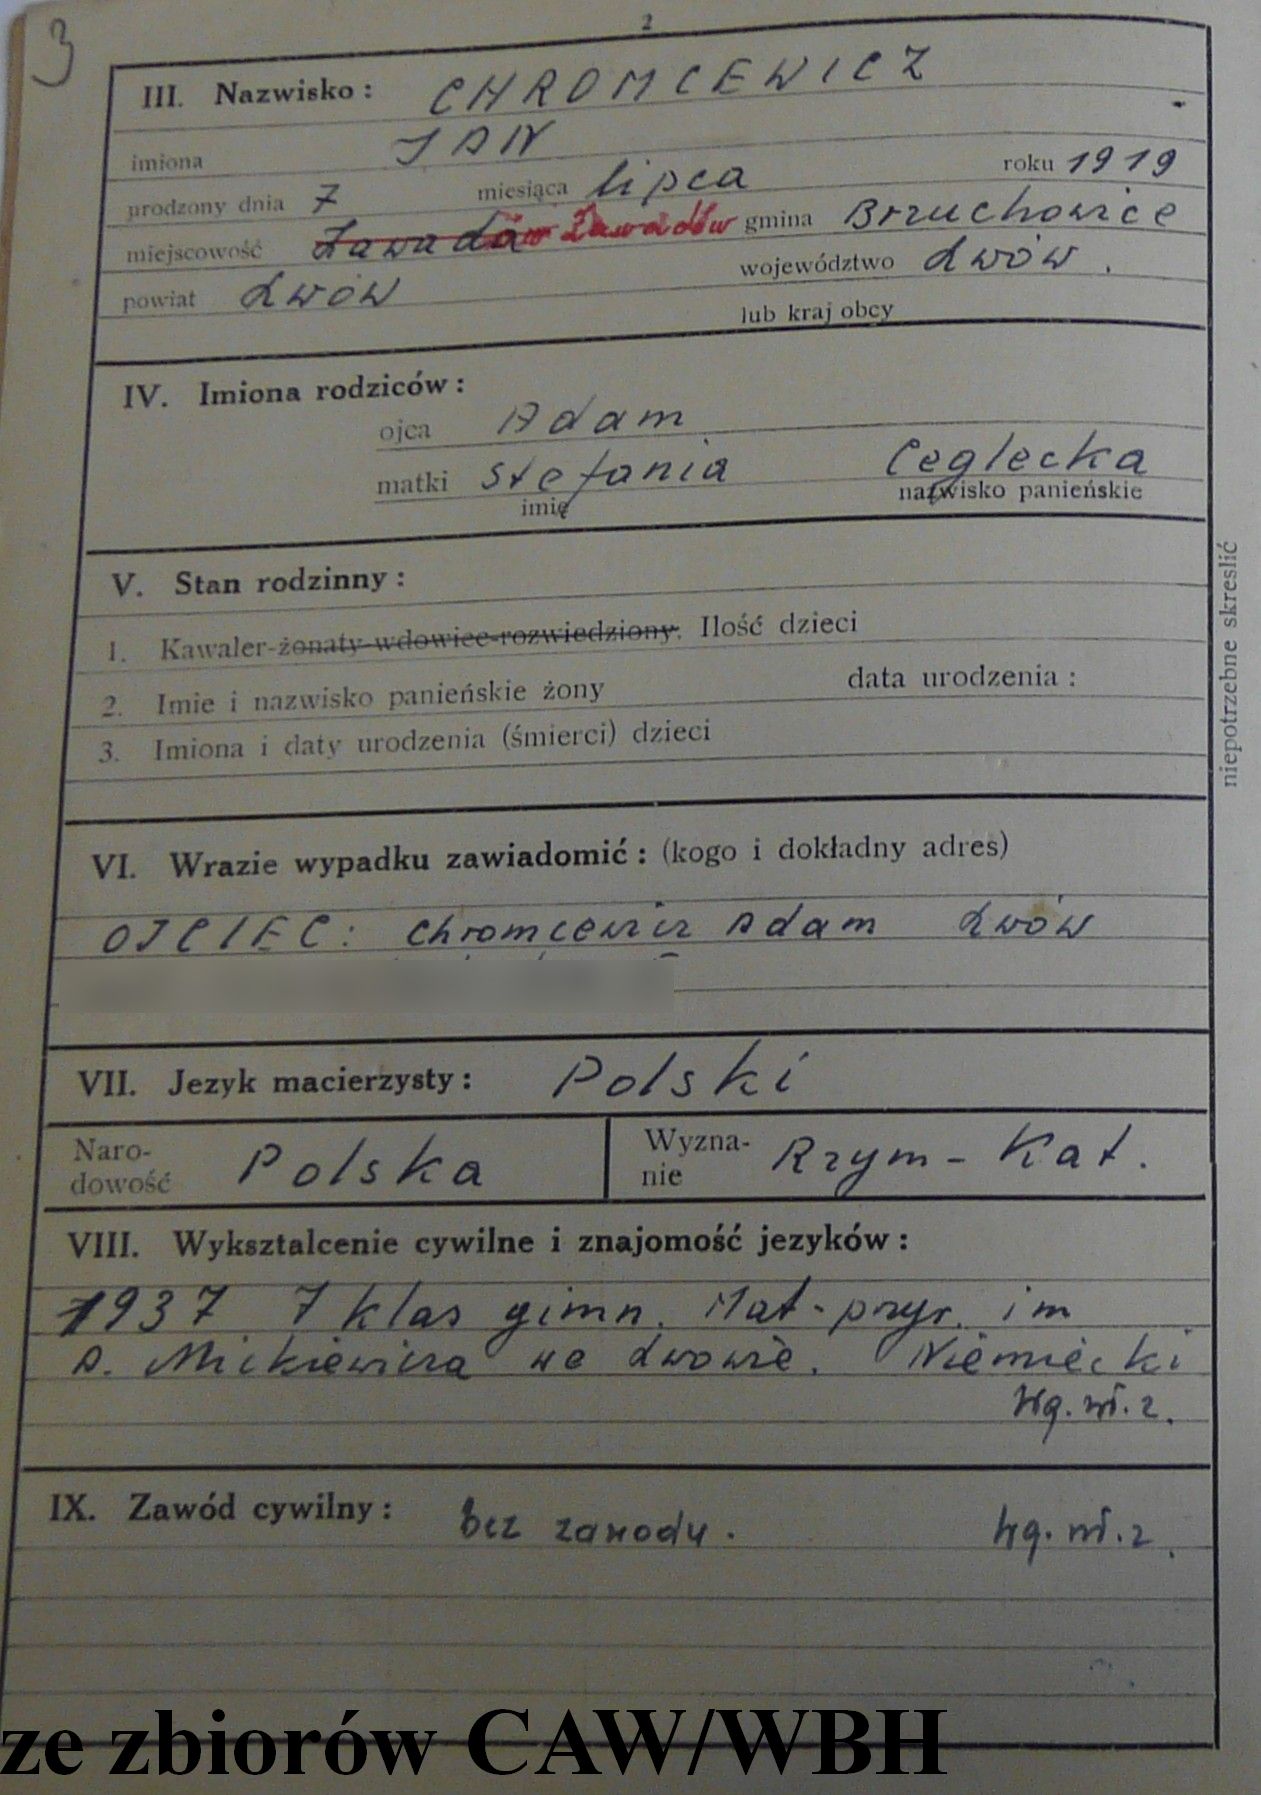 3
2
III. Nazwisko: CHROMCEWICZ
imiona JAN
urodzony dnia 7 miesiąca lipca roku 1919
miejscowość Zawadów Zawadów gmina Brzuchowice
powiat Lwów województwo Lwów.
lub kraj obcy
IV. Imiona rodziców:
ojca Adam
matki Stefania Ceglecka
imię nazwisko panieńskie
V. Stan rodzinny:
1. Kawaler-żonaty-wdowiec-rozwiedziony. Ilość dzieci
2. Imie i nazwisko panieńskie żony data urodzenia:
3. Imiona i daty urodzenia (śmierci) dzieci
niepotrzebne skreslić
VI. Wrazie wypadku zawiadomić: (kogo i dokładny adres)
OJCIEC: Chromcewicz Adam Lwów
VII. Jezyk macierzysty: Polski
Naro-
dowość Polska
Wyzna-
nie Rzym-Kat.
VIII. Wyksztalcenie cywilne i znajomość jezyków:
1937 7 klas gimn. Mat-przyr. im
A. Mickiewicza we Lwowie. Niemiecki
Wg. wł. z.
IX. Zawód cywilny: bez zawodu. Wg. wł. z.
ze zbiorów CAW/WBH